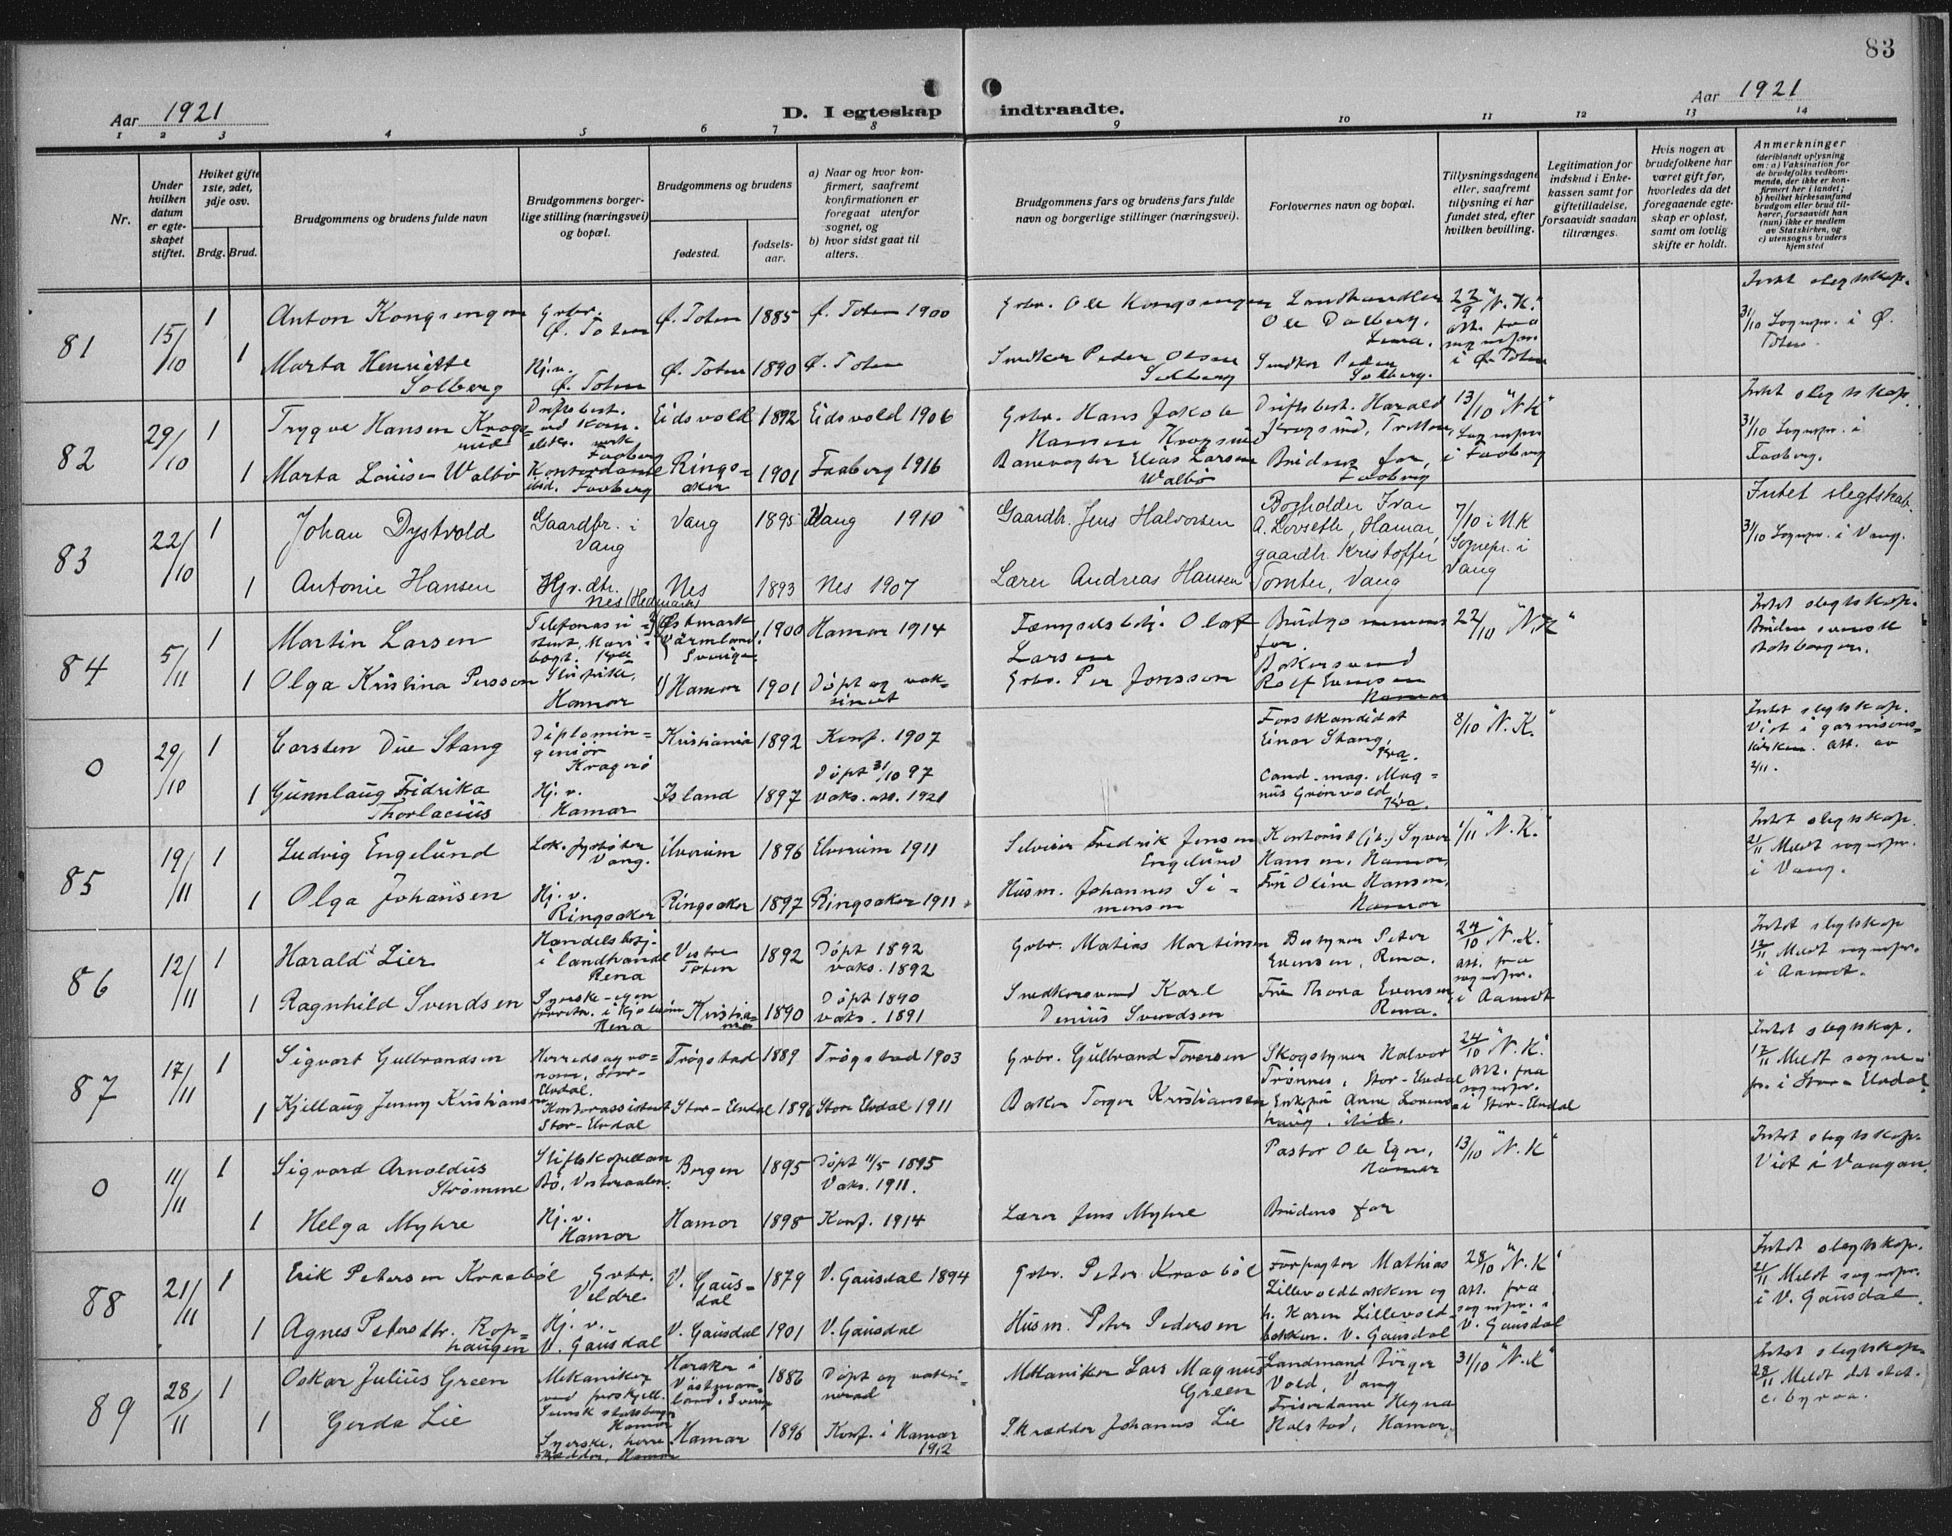 83
Aar 1921
D. I egteskap indtraadte.
Aar 1921
1 2 3 4 5 6 7 8 9 10 11 12 13 14
Nr.
Under hvilken datum er egteskapet stiftet.
Hvilket gifte 1ste, 2det, 3dje osv.
Brdg. Brud.
Brudgommens og brudens fulde navn
Brudgommens borgerlige stilling (næringsvei) og bopæl.
Brudgommens og brudens
fødested.
fødselsaar.
a) Naar og hvor konfirmert, saafremt konfirmationen er foregaat utenfor sognet, og
b) hvor sidst gaat til alters.
Brudgommens fars og brudens fars fulde navn og borgerlige stillinger (næringsvei).
Forlovernes navn og bopæl.
Tillysningsdagene eller, saafremt tillysning ei har fundet sted, efter hvilken bevilling.
Legitimation for indskud i Enkekassen samt for giftetilladelse, forsaavidt saadan tiltrænges.
Hvis nogen av brudefolkene har været gift før, hvorledes da det foregaaende egteskap er opløst, samt om lovlig skifte er holdt.
Anmerkninger (deriblandt oplysning om: a) Vaksination for de brudefolks vedkommende, der ikke er konfirmert her i landet; b) hvilket kirkesamfund brudgom eller brud tilhører, forsaavidt han (hun) ikke er medlem av Statskirken, og c) utensogns bruders hjemsted
81 15/10 1 Anton Kongsengen Grbr. Ø. Toten Ø. Toten 1885 Ø. Toten 1900 Grbr. Ole Kongsengen Landhandler Ole Dalberg, Lena. 22/9 "N. K." att. fra sognepr. i Ø. Toten Intet slegtskap. 31/10 Sognepr. i Ø. Toten.
1 Marta Henriette Solberg Hj. v. Ø. Toten Ø. Toten 1890 Ø. Toten Snedker Peder Olsen Solberg Snedker Peder Solberg.
82 29/10 1 Trygve Hansen Krogsrud Driftsbest. ved Kom. elektr. verk Faaberg Eidsvold 1892 Eidsvold 1906 Grbr. Hans Jakob Hansen Krogsrud Driftsbest. Harald Krogsrud, 13/10 "N. K" Sognepr. i Faaberg Intet slegtskap. 31/10 Sognepr. i Faaberg.
1 Marta Louise Walbø Kontordame ibid. Faaberg Ringsaker 1901 Faaberg 1916 Banevogter Elias Larsen Walbø Brudens far, Faaberg
83 22/10 1 Johan Dystvold Gaardbr. i Vang Vang 1895 Vang 1910 Gaardbr. Jens Halvorsen Bogholder Ivar A. Lovseth, Hamar, gaardbr. Kristoffer Tomter, Vang 7/10 i N K Sognepr. i Vang Intet slegtskab. 31/10 Sognepr. i Vang.
1 Antonie Hansen Hjv. dtr. Nes (Hedmark) Nes 1893 Nes 1907 Lærer Andreas Hansen
84 5/11 1 Martin Larsen Hamar 1914 1900 Fængselsbetj. Olaf Larsen Brudgommens far. 22/10 "N. K" Intet slegtskap. Bruden svensk statsborger.
1 Olga Kristina Persson Hamar Hamar 1901 Døpt og vaksinert Grbr. Per Jonsson Bakersvend Rolf Evensen Hamar
0 29/10 1 Carsten Due Stang Diplomingeniør Kragerø Kristiania 1892 Konf. 1907 Forstkandidat Einar Stang, Kra. 8/10 "N. K." Intet slegtskap. Viet i garnisonskirken. att. av 2/11.
1 Gunnlaug Fridrika Thorlacius Hj. v. Hamar Island 1897 Døpt 31/10 97 vaks. att. 1921 Cand. mag. Magnus Grønvold Kra.
85 19/11 1 Ludvig Engelund Lok. fyrbøter Vang. Elverum 1896 Elverum 1911 Fredrik Jensen Engelund Kontorist Syver Hansen, Hamar, 1/11 "N. K." Intet slegtskap. 21/11 Meldt sognepr. i Vang.
1 Olga Johansen Hj. v. Ringsaker Ringsaker 1897 Ringsaker 1911 Husm. Johannes Simensen Fru Oline Hansen, Hamar
86 12/11 1 Harald Lier Handelsbetj. i landhandel Rena Vestre Toten 1892 Døpt 1892 vaks. 1892 Grbr. Matias Martinsen Bestyrer Peter Evensen, Rena. 24/10 "N. K." att. fra sognepr. i Aamot Intet slegtskap 12/11 Meldt sognepr. i Aamot.
1 Ragnhild Svendsen Rena Kristiania 1890 Døpt 1890 vaks. 1891 Snedkersvend Karl Denius Svendsen Fru Thora Evensen Rena.
87 17/11 1 Sigvart Gulbrandsen Herredsagronom, Stor-Elvdal. Trøgstad 1889 Trøgstad 1903 Grbr. Gulbrand Toresen Skogstyrer Halvor Trønnes, Stor-Elvdal 24/10 "N. K." att. fra sognepr. i Stor-Elvdal Intet slegtskap. 17/11 Meldt sognepr. i Stor-Elvdal
1 Kjellaug Jenny Kristiansen Kontorassistent Stor-Elvdal Stor-Elvdal 1896 Stor Elvdal 1911 Baker Torger Kristiansen
0 11/11 1 Sigvard Arnoldus Strømme Stiftskapellan Bø, Vesteraalen. Bergen 1895 Døpt 11/5 1895 Vaks. 1911. Pastor Ole Egen, Hamar 13/10 "N. K" Intet slegtskap. Viet i Vaagan.
1 Helga Myhre Hj. v. Hamar Hamar 1898 Konf. 1914 Lærer Jens Myhre Brudens far
88 21/11 1 Erik Petersen Kraabøl Grbr. Veldre V. Gausdal 1879 V. Gausdal 1894 Grbr. Peter Kraabøl Forpagter Mathias Lillevoldbakken og h. Karen Lillevoldbakken. V. Gausdal 28/10 "N. K" att. fra sognepr. i V. Gausdal Intet slegtskap. 21/11 Meldt sognepr. i V. Gausdal.
1 Agnes Petersdtr. Rophaugen Hj. v. V. Gausdal V. Gausdal 1901 V. Gausdal Husm. Peter Pedersen
89 28/11 1 Oskar Julius Green Mekaniker Svensk statsborger Hamar Västmanland, Sverige 1886 Døpt og vaksinerad Mekaniker Lars Magnus Green Landmand Børger Vold, Vang 31/10 "N. K" Intet slegtskap. 28/11 Meldt det stat. c. byraa.
1 Gerda Lie Syerske, herreskrædder, Hamar Hamar 1896 Konf. i Hamar 1912 Skrædder Johannes Lie Frisørdame Halstad, Hamar.